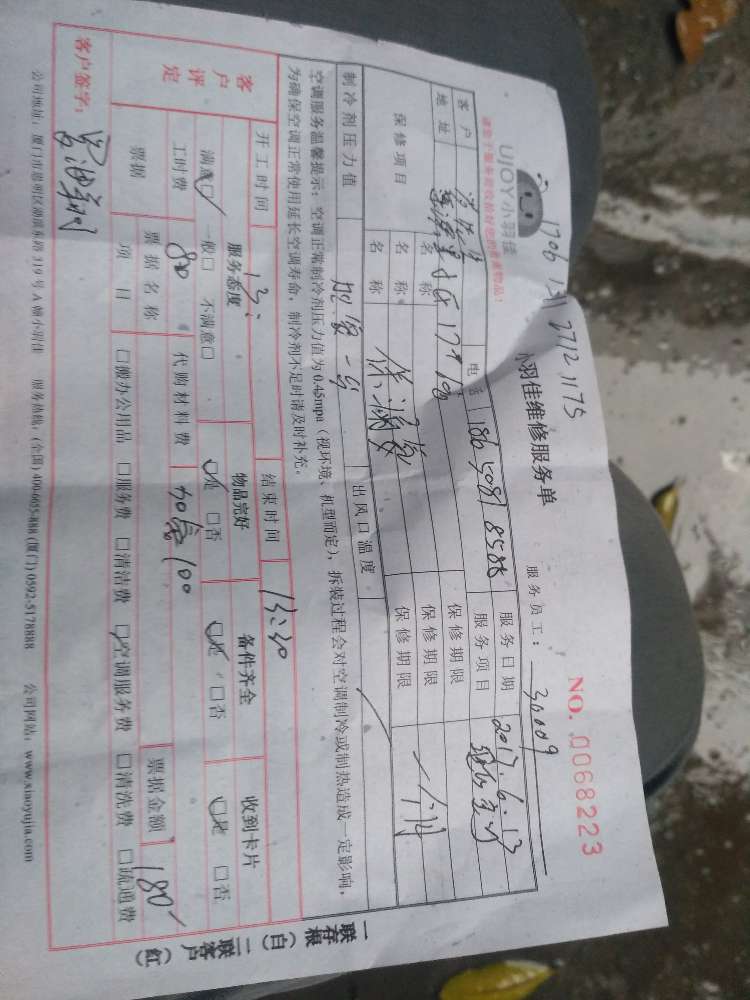 1706 1311 2712 1175
UJOY小羽佳
请您于服务前收拾好您的贵重物品！
小羽佳维修服务单
服务员工：30009
NO. 0068223
客户
电话 186 5081 8586
服务日期 2017.6.13
地址
服务项目
保修项目
名称
保修期限
名称
保修期限
名称
保修期限 一个月
制冷剂压力值
出风口温度
空调服务温馨提示：空调正常制冷剂压力值为0.45mpa（视环境、机型而定），拆装过程会对空调制冷或制热造成一定影响，
为确保空调正常使用延长空调寿命，制冷剂不足时请及时补充。
开工时间 13:
结束时间 13:30
客户评定
服务态度
物品完好
备件齐全
收到卡片
满意☑ 一般□ 不满意□
☑是 □否
☑是 □否
☑是 □否
工时费 80
代购材料费 加氟100
票据金额 180
票据
票据名称
项目
□搬办公用品 □服务费 □清洁费 ☑空调服务费 □清洗费 □疏通费
客户签字：
一联存根（白） 二联客户（红）
公司地址：厦门市思明区湖滨东路319号A幢小羽佳 服务热线：(全国) 400-6655-888 (厦门) 0592-5178888 公司网站：www.xiaoyujia.com